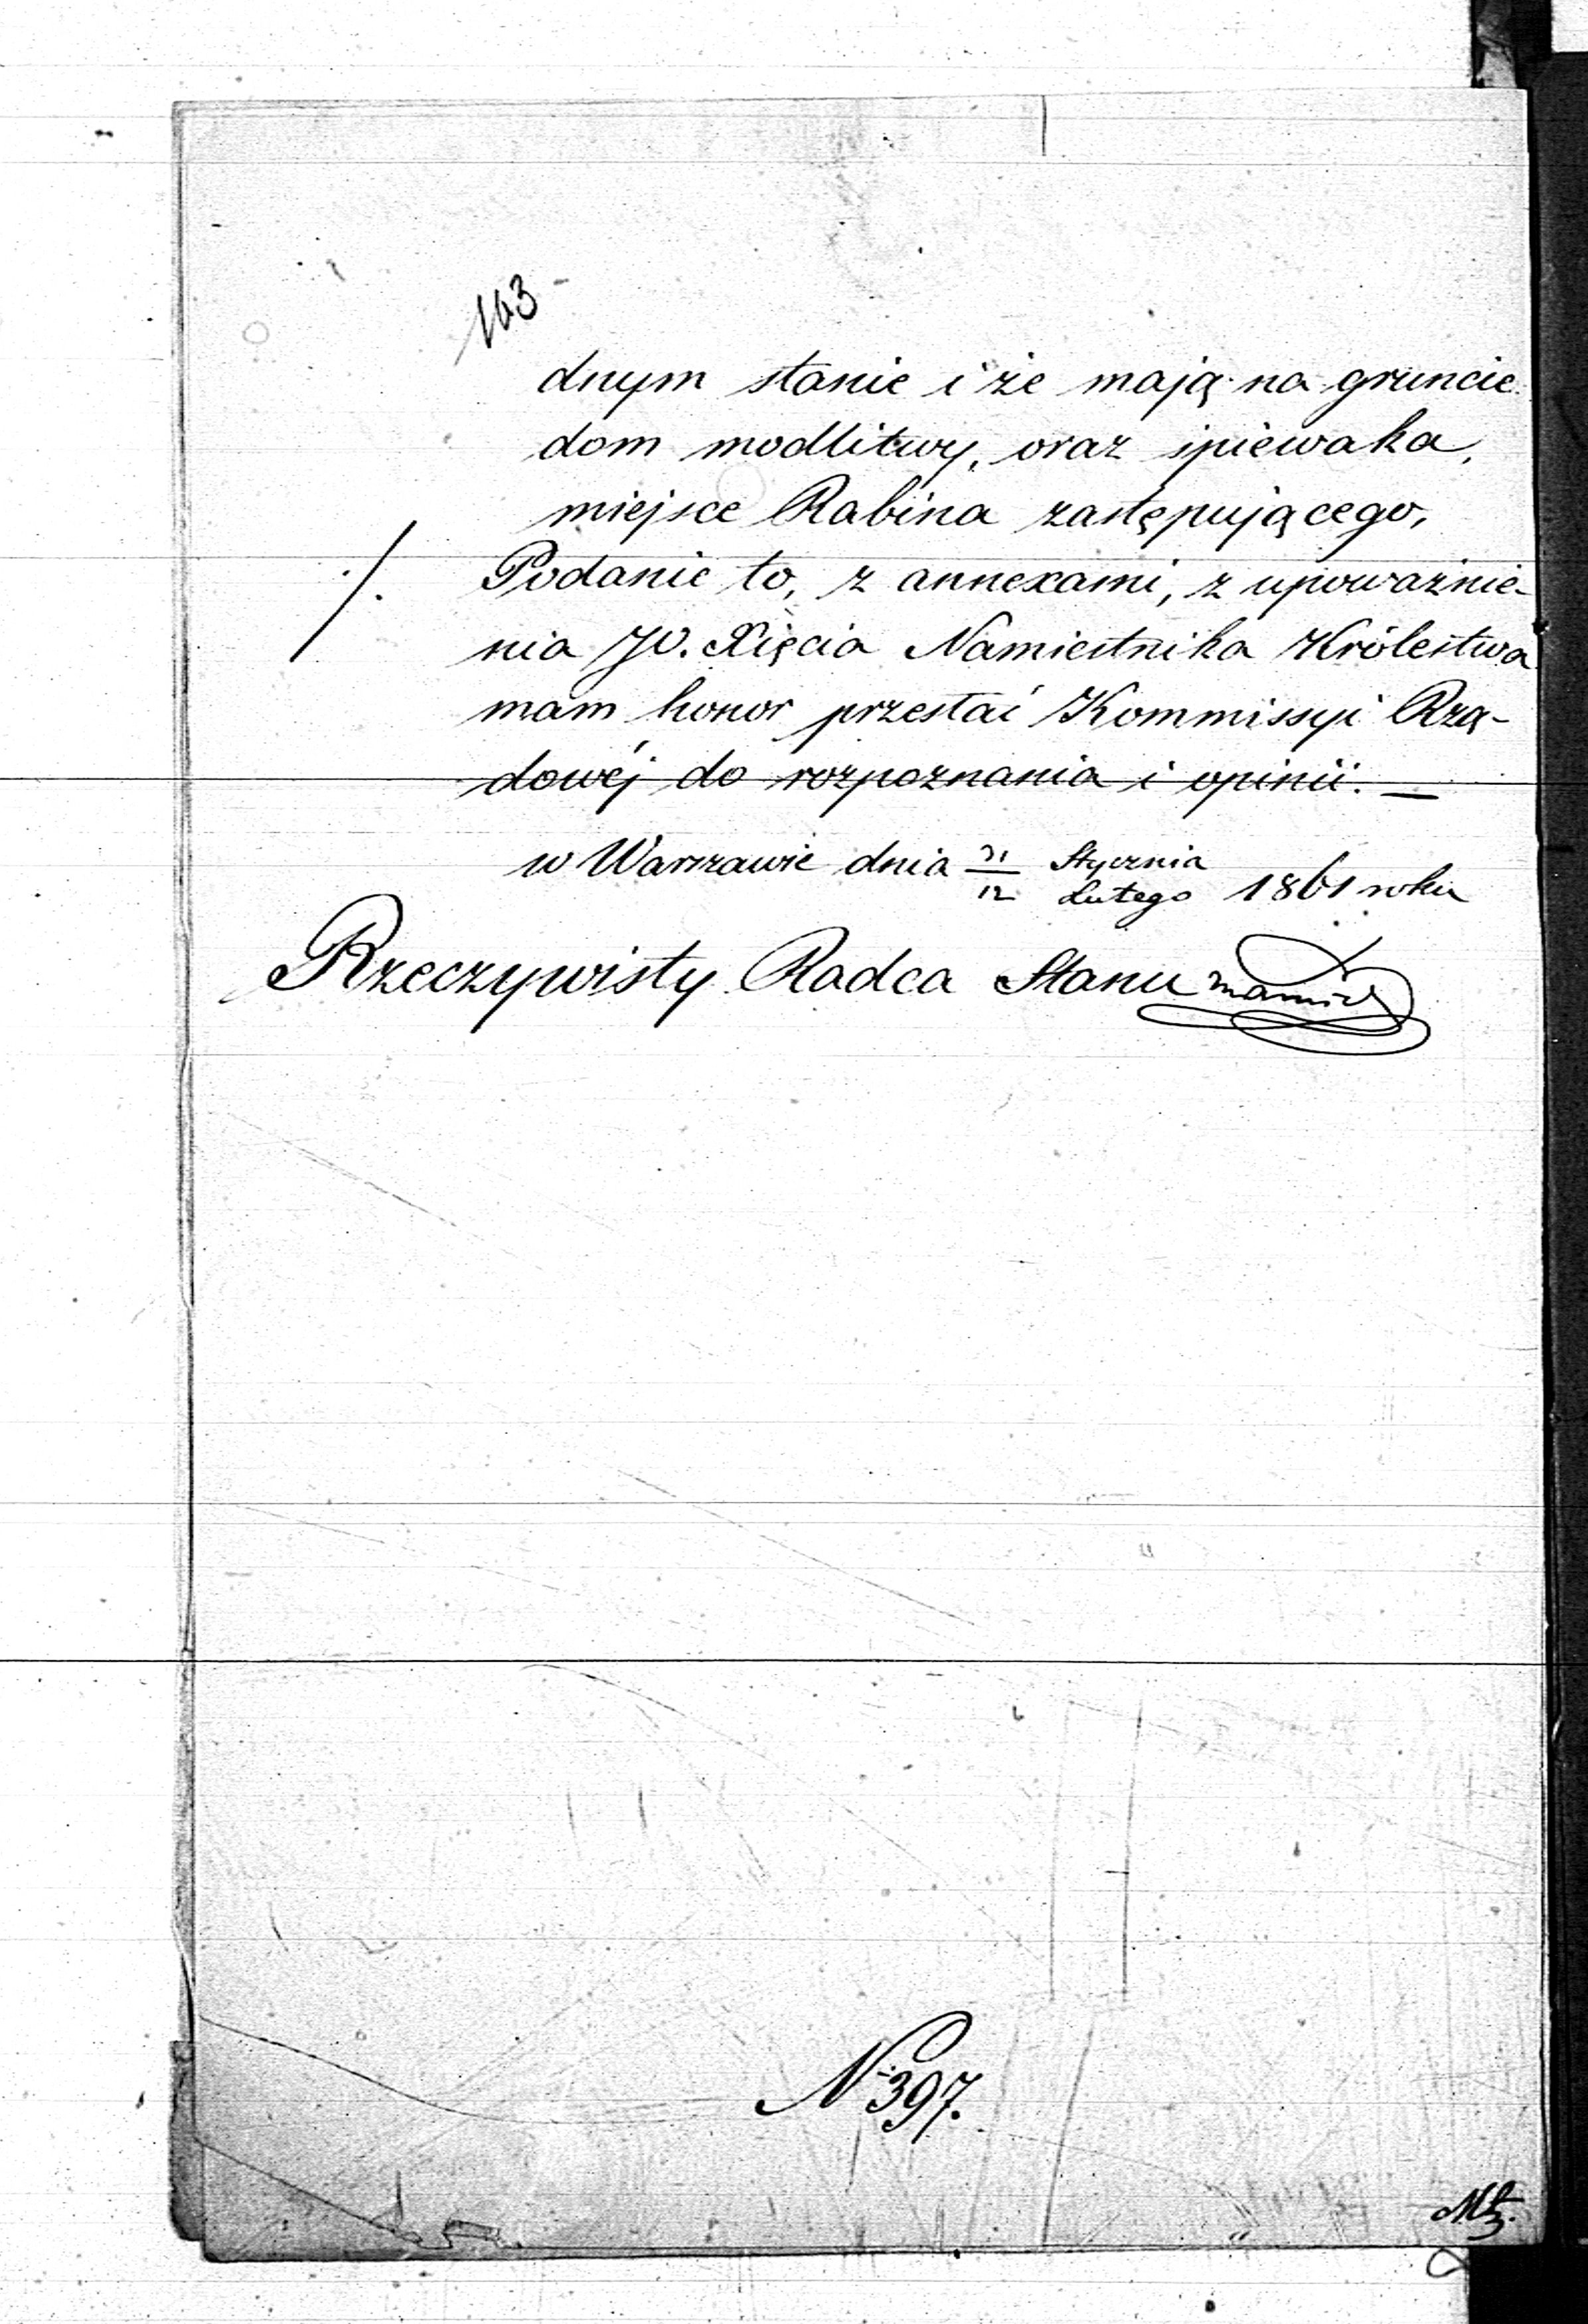 103
dnym stanie i że mają na gruncie
dom modlitwy, oraz śpiewaka,
miejsce Rabina zastępującego,
./. Podanie to, z annexami, z upoważnie-
nia JO. Xięcia Namiestnika Królestwa
mam honor przesłać Kommissyi Rzą-
dowéj do rozpoznania i opinii. —
w Warszawie dnia 31/12 Stycznia/Lutego 1861 roku
Rzeczywisty Radca Stanu
N 397.